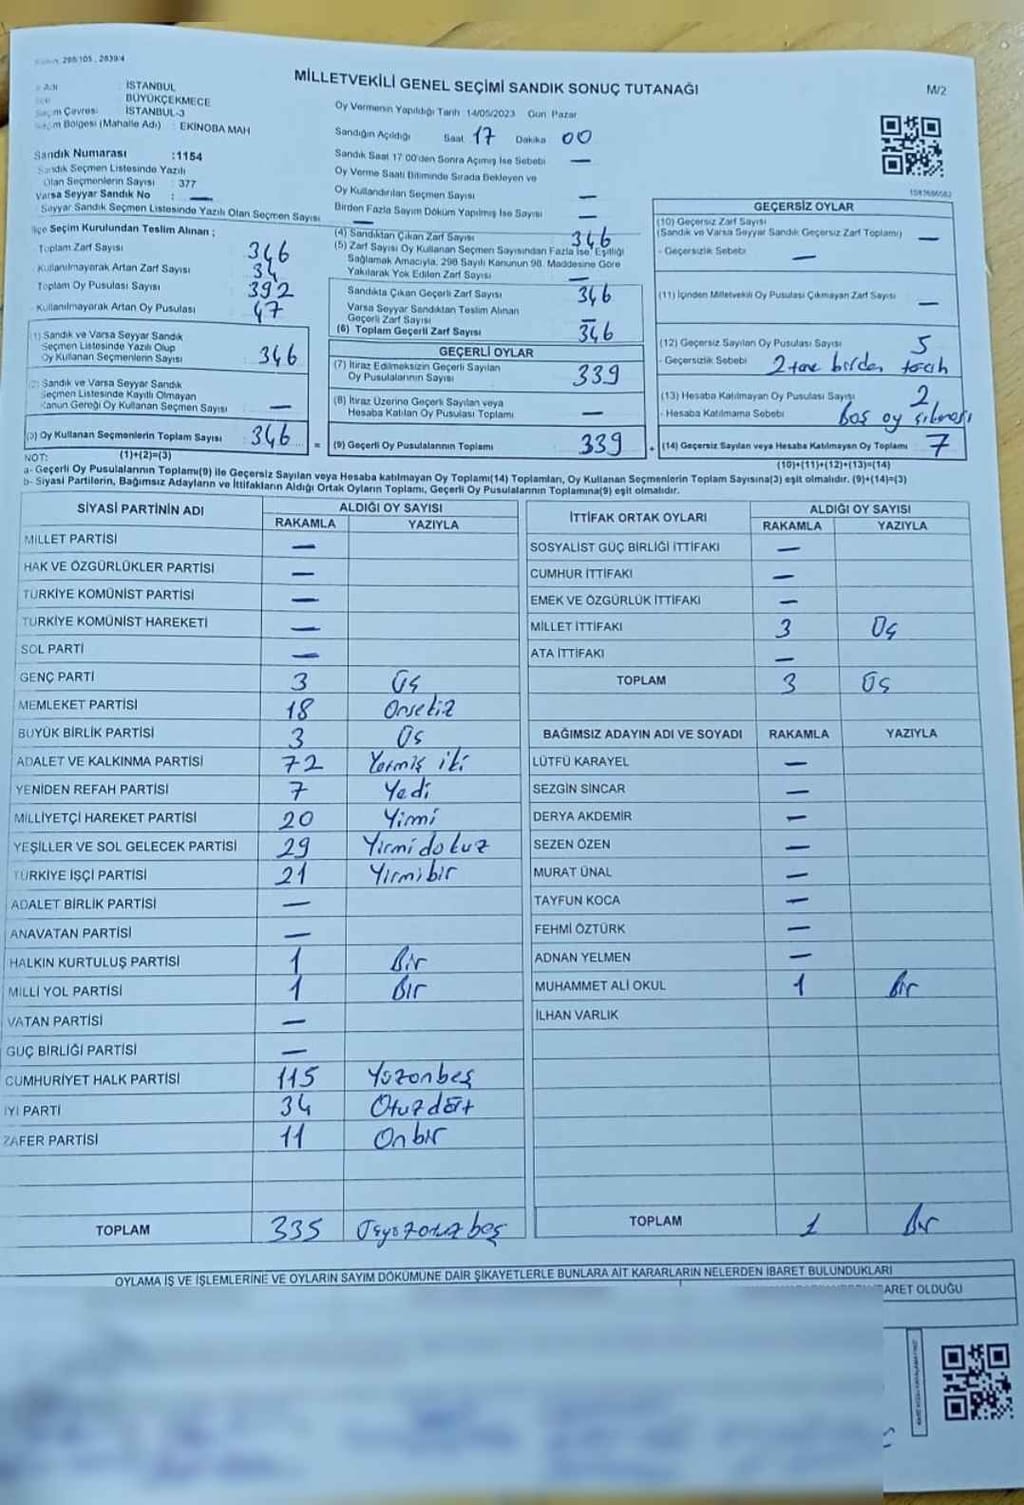 298/105 , 2839/4
MİLLETVEKİLİ GENEL SEÇİMİ SANDIK SONUÇ TUTANAĞI
M/2
Adı : İSTANBUL
BÜYÜKÇEKMECE
Seçim Çevresi : İSTANBUL-3
Seçim Bölgesi (Mahalle Adı) : EKİNOBA MAH
Oy Vermenin Yapıldığı Tarih 14/05/2023 Gün Pazar
Sandığın Açıldığı Saat 17 Dakika 00
Sandık Numarası :1154
Sandık Seçmen Listesinde Yazılı
Olan Seçmenlerin Sayısı : 377
Varsa Seyyar Sandık No : —
Seyyar Sandık Seçmen Listesinde Yazılı Olan Seçmen Sayısı —
Sandık Saat 17.00'den Sonra Açımış İse Sebebi —
Oy Verme Saati Bitiminde Sırada Bekleyen ve
Oy Kullandırılan Seçmen Sayısı —
Birden Fazla Sayım Döküm Yapılmış İse Sayısı —
İlçe Seçim Kurulundan Teslim Alınan ;
Toplam Zarf Sayısı 346
Kullanılmayarak Artan Zarf Sayısı 34
Toplam Oy Pusulası Sayısı 392
Kullanılmayarak Artan Oy Pusulası 47
(1) Sandık ve Varsa Seyyar Sandık
Seçmen Listesinde Yazılı Olup
Oy Kullanan Seçmenlerin Sayısı 346
(2) Sandık ve Varsa Seyyar Sandık
Seçmen Listesinde Kayıtlı Olmayan
Kanun Gereği Oy Kullanan Seçmen Sayısı —
(3) Oy Kullanan Seçmenlerin Toplam Sayısı 346
(1)+(2)=(3)
(4) Sandıktan Çıkan Zarf Sayısı 346
(5) Zarf Sayısı Oy Kullanan Seçmen Sayısından Fazla İse, Eşitliği
Sağlamak Amacıyla, 298 Sayılı Kanunun 98. Maddesine Göre
Yakılarak Yok Edilen Zarf Sayısı —
Sandıkta Çıkan Geçerli Zarf Sayısı 346
Varsa Seyyar Sandıktan Teslim Alınan
Geçerli Zarf Sayısı —
(6) Toplam Geçerli Zarf Sayısı 346
GEÇERLİ OYLAR
(7) İtiraz Edilmeksizin Geçerli Sayılan
Oy Pusulalarının Sayısı 339
(8) İtiraz Üzerine Geçerli Sayılan veya
Hesaba Katılan Oy Pusulası Toplamı —
= (9) Geçerli Oy Pusulalarının Toplamı 339 +
1587686582
GEÇERSİZ OYLAR
(10) Geçersiz Zarf Sayısı
(Sandık ve Varsa Seyyar Sandık Geçersiz Zarf Toplamı) —
- Geçersizlik Sebebi —
(11) İçinden Milletvekili Oy Pusulası Çıkmayan Zarf Sayısı —
(12) Geçersiz Sayılan Oy Pusulası Sayısı 5
- Geçersizlik Sebebi 2 tane birden tercih
(13) Hesaba Katılmayan Oy Pusulası Sayısı 2
- Hesaba Katılmama Sebebi Boş oy çıkması
(14) Geçersiz Sayılan veya Hesaba Katılmayan Oy Toplamı 7
(10)+(11)+(12)+(13)=(14)
NOT:
a- Geçerli Oy Pusulalarının Toplamı(9) ile Geçersiz Sayılan veya Hesaba katılmayan Oy Toplamı(14) Toplamları, Oy Kullanan Seçmenlerin Toplam Sayısına(3) eşit olmalıdır. (9)+(14)=(3)
b- Siyasi Partilerin, Bağımsız Adayların ve İttifakların Aldığı Ortak Oyların Toplamı, Geçerli Oy Pusulalarının Toplamına(9) eşit olmalıdır.
SİYASİ PARTİNİN ADI ALDIĞI OY SAYISI
RAKAMLA YAZIYLA
MİLLET PARTİSİ —
HAK VE ÖZGÜRLÜKLER PARTİSİ —
TÜRKİYE KOMÜNİST PARTİSİ —
TÜRKİYE KOMÜNİST HAREKETİ —
SOL PARTİ —
GENÇ PARTİ 3 Üç
MEMLEKET PARTİSİ 18 Onsekiz
BÜYÜK BİRLİK PARTİSİ 3 Üç
ADALET VE KALKINMA PARTİSİ 72 Yetmiş iki
YENİDEN REFAH PARTİSİ 7 Yedi
MİLLİYETÇİ HAREKET PARTİSİ 20 Yirmi
YEŞİLLER VE SOL GELECEK PARTİSİ 29 Yirmidokuz
TÜRKİYE İŞÇİ PARTİSİ 21 Yirmibir
ADALET BİRLİK PARTİSİ —
ANAVATAN PARTİSİ —
HALKIN KURTULUŞ PARTİSİ 1 Bir
MİLLİ YOL PARTİSİ 1 Bir
VATAN PARTİSİ —
GÜÇ BİRLİĞİ PARTİSİ —
CUMHURİYET HALK PARTİSİ 115 Yüzonbeş
İYİ PARTİ 34 Otuzdört
ZAFER PARTİSİ 11 Onbir
TOPLAM 335 Üçyüzotuzbeş
İTTİFAK ORTAK OYLARI ALDIĞI OY SAYISI
RAKAMLA YAZIYLA
SOSYALİST GÜÇ BİRLİĞİ İTTİFAKI —
CUMHUR İTTİFAKI —
EMEK VE ÖZGÜRLÜK İTTİFAKI —
MİLLET İTTİFAKI 3 Üç
ATA İTTİFAKI —
TOPLAM 3 Üç
BAĞIMSIZ ADAYIN ADI VE SOYADI RAKAMLA YAZIYLA
LÜTFÜ KARAYEL —
SEZGİN SİNCAR —
DERYA AKDEMİR —
SEZEN ÖZEN —
MURAT ÜNAL —
TAYFUN KOCA —
FEHMİ ÖZTÜRK —
ADNAN YELMEN —
MUHAMMET ALİ OKUL 1 Bir
İLHAN VARLIK
TOPLAM 1 Bir
OYLAMA İŞ VE İŞLEMLERİNE VE OYLARIN SAYIM DÖKÜMÜNE DAİR ŞİKAYETLERLE BUNLARA AİT KARARLARIN NELERDEN İBARET BULUNDUKLARI
ARET OLDUĞU